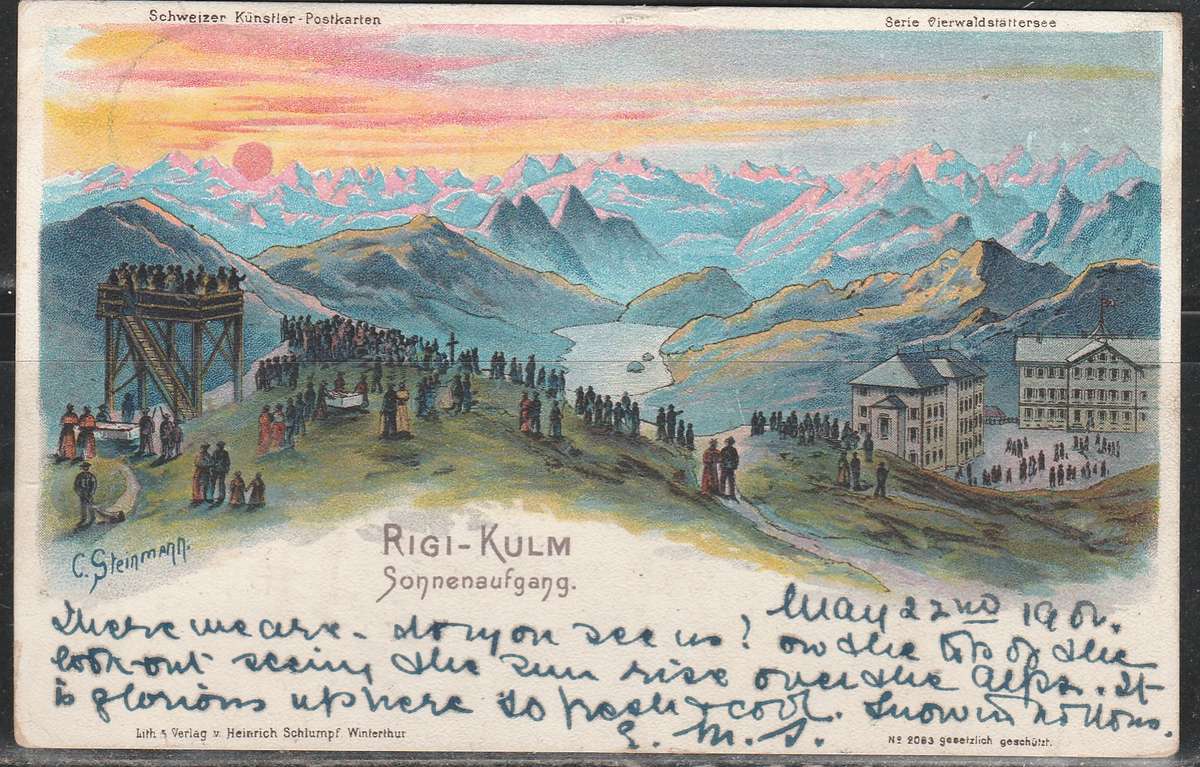 Schweizer Künstler-Postkarten
Serie Vierwaldstättersee
C. Steinmann.
RIGI-KULM
Sonnenaufgang.
May 22nd
There we are - do you see us? on the top of the
look-out seeing the sun rise over the Alps. It
is glorious up here so fresh & cool. Snow in
E. M. S.
Lith. & Verlag v. Heinrich Schlumpf Winterthur
No 2083 gesetzlich geschützt.